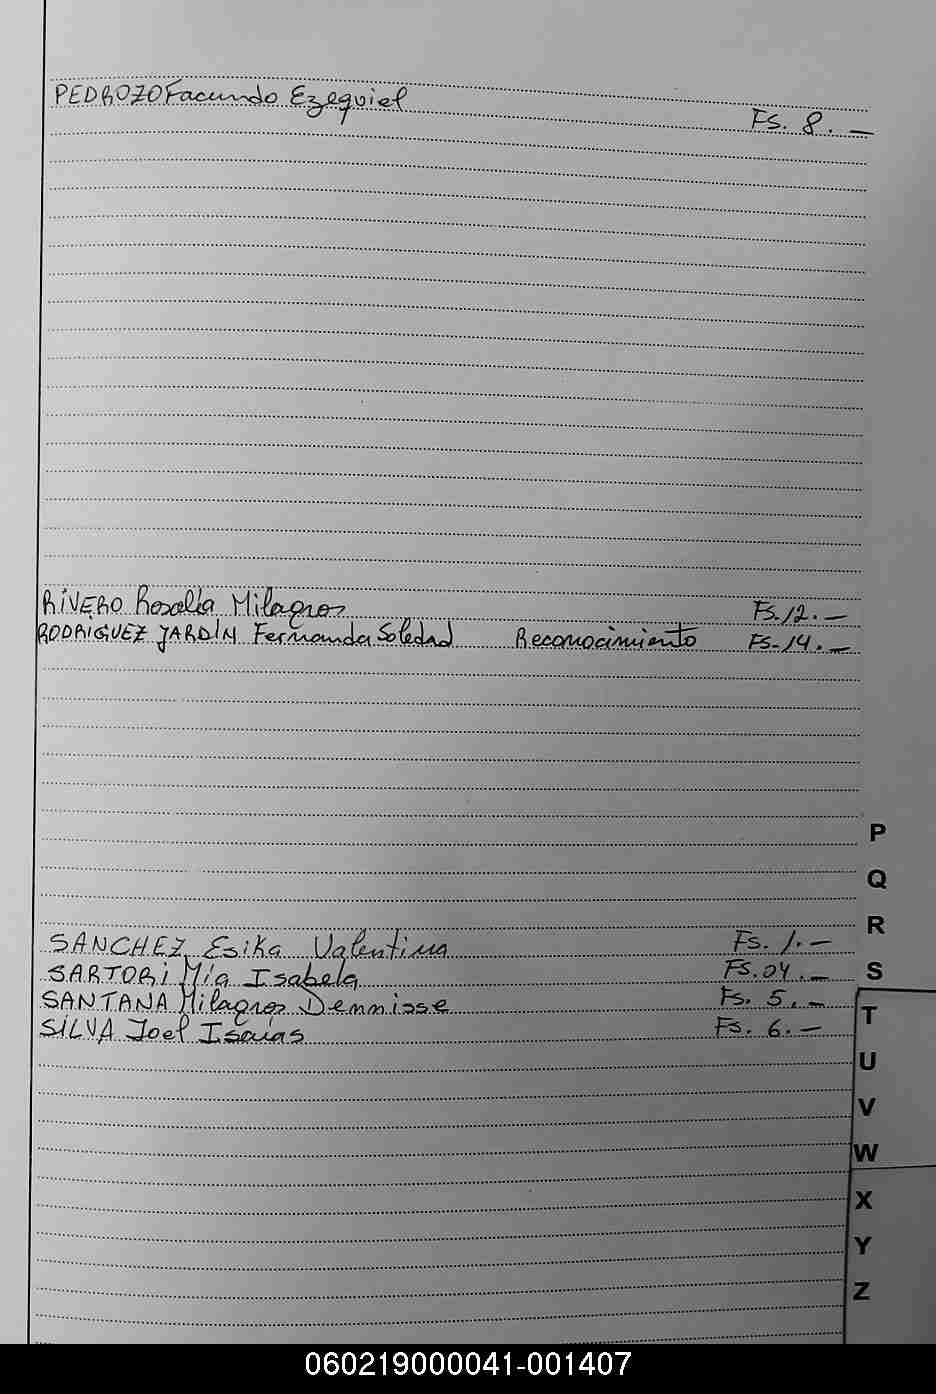 PEDROZO Facundo Ezequiel Fs. 8. —
RIVERO Rosalía Milagros Fs. 12. —
RODRIGUEZ JARDÍN Fernanda Soledad Reconocimiento Fs. 14. —
SANCHEZ Esika Valentina Fs. 1. —
SARTORI Mía Isabela Fs. 04. —
SANTANA Milagros Dennisse Fs. 5. —
SILVA Joel Isaías Fs. 6. —
P
Q
R
S
T
U
V
W
X
Y
Z
060219000041-001407